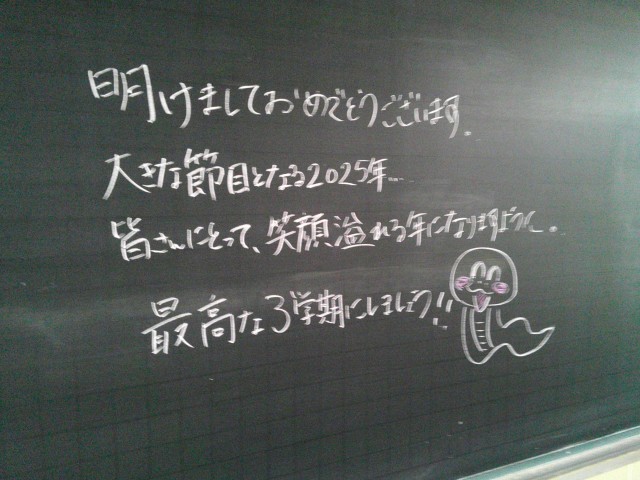 明けましておめでとうございます。
大きな節目となる2025年…
皆さんにとって、笑顔溢れる年になりますように。
最高な3学期にしましょう!!